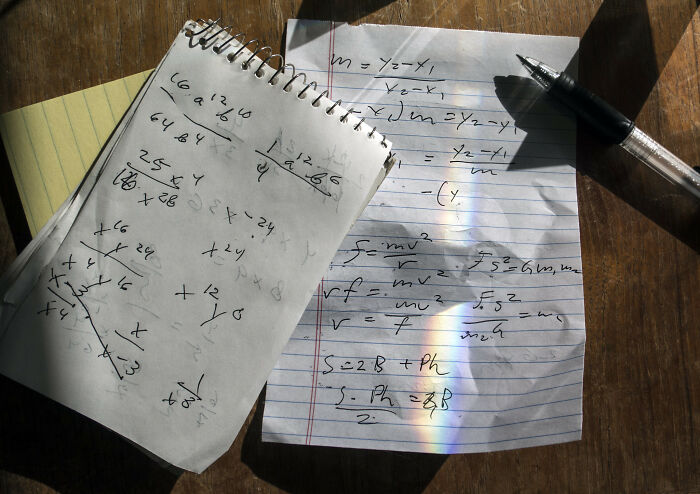 16 a^12 b^10
64 b^4
1
4 a^12 b^6
25 x^4
x^28
x^-24
x^16
x^24
x^24
x^4
x^16
x^12
y^8
x^-3
x^4
x
x^-3
1
x^8
m = y₂-y₁
x₂-x₁
x₁)m = y₂-y₁
= y₂-y₁
m
-(y
f = mv²
r
Fs² = Gm₁m₂
rf = mv²
r = mv²
f
F.s²
m₂G
= m₁
S = 2B + Ph
S - Ph = B
2